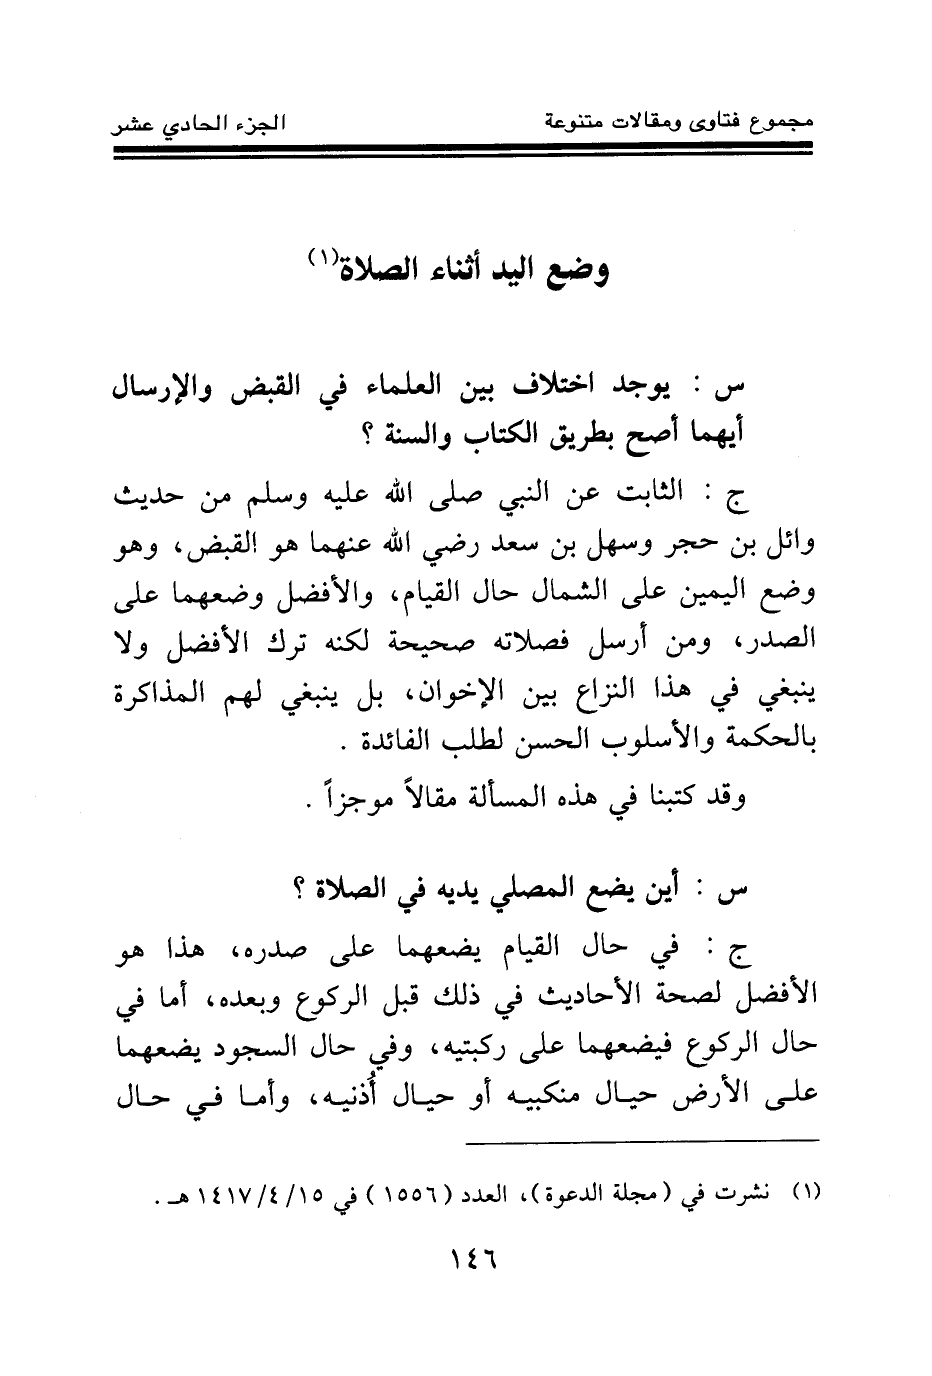 مجموع فتاوى ومقالات متنوعة الجزء الحادي عشر
وضع اليد أثناء الصلاة(١)
س : يوجد اختلاف بين العلماء في القبض والإرسال
أيهما أصح بطريق الكتاب والسنة ؟
ج : الثابت عن النبي صلى الله عليه وسلم من حديث
وائل بن حجر وسهل بن سعد رضي الله عنهما هو القبض، وهو
وضع اليمين على الشمال حال القيام، والأفضل وضعهما على
الصدر، ومن أرسل فصلاته صحيحة لكنه ترك الأفضل ولا
ينبغي في هذا النزاع بين الإخوان، بل ينبغي لهم المذاكرة
بالحكمة والأسلوب الحسن لطلب الفائدة .
وقد كتبنا في هذه المسألة مقالاً موجزاً .
س : أين يضع المصلي يديه في الصلاة ؟
ج : في حال القيام يضعهما على صدره، هذا هو
الأفضل لصحة الأحاديث في ذلك قبل الركوع وبعده، أما في
حال الركوع فيضعهما على ركبتيه، وفي حال السجود يضعهما
على الأرض حيال منكبيه أو حيال أُذنيه، وأما في حال
(١) نشرت في (مجلة الدعوة)، العدد (١٥٥٦) في ١٤١٧/٤/١٥ هـ .
١٤٦